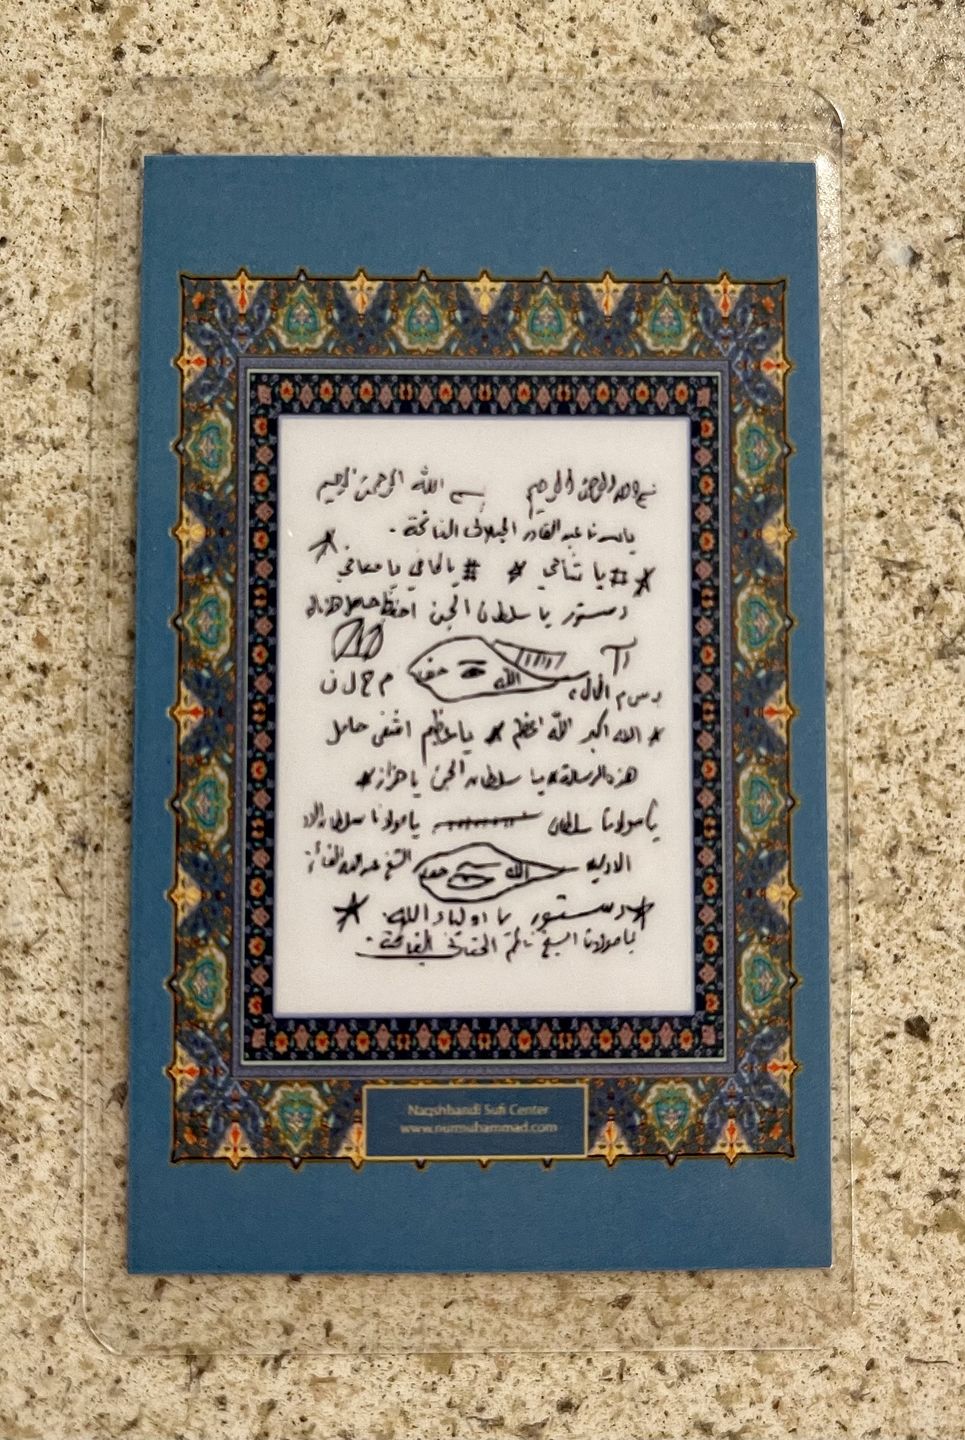 بسم الله الرحمن الرحيم بسم الله الرحمن الرحيم
يا سيدنا عبد القادر الجيلاني الفاتحة
# يا شافي # يا كافي يا معافي
دستور يا سلطان الجن احفظ حامل هذه
الله حق
م ح ل ن
الله اكبر الله اعظم يا عظيم اشفي حامل
هذه الرسالة يا سلطان الجن يا هزاز
يا مولانا سلطان يا مولانا سلطان
الاولياء الله حق الشيخ عبد الله
دستور يا اولياء الله
يا مولانا الشيخ ناظم الحقاني الفاتحة
Naqshbandi Sufi Center
www.nurmuhammad.com